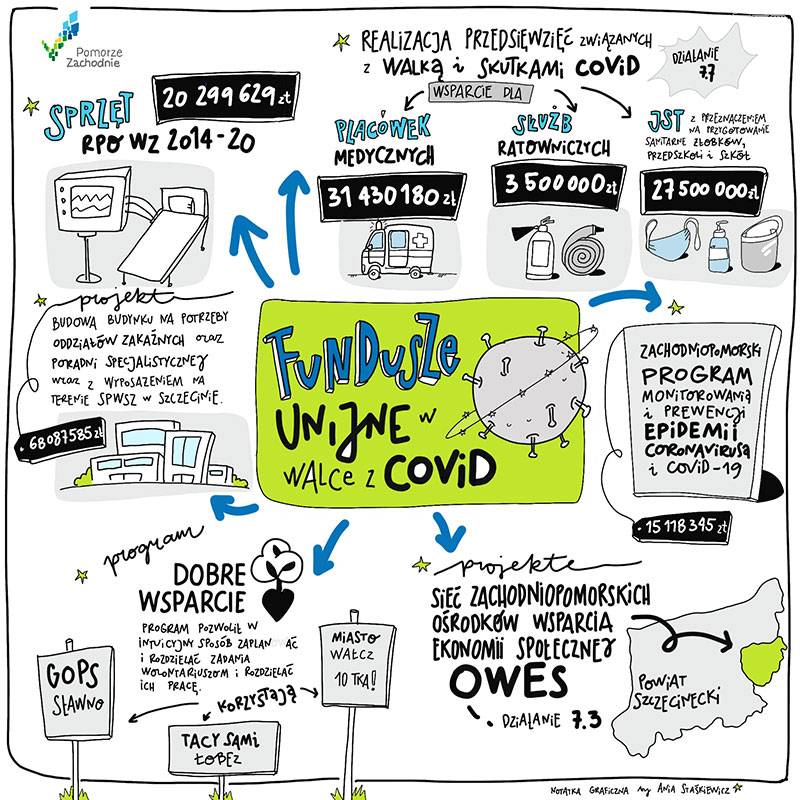 Pomorze
Zachodnie
REALIZACJA PRZEDSIĘWZIĘĆ ZWIĄZANYCH
Z WALKĄ i SKUTKAMI COViD
DZIAŁANIE
7.7
WSPARCIE DLA
SPRZĘT
20 299 629 zł
RPO WZ 2014-20
PLACÓWEK
MEDYCZNYCH
31 430 180 zł
SŁUŻB
RATOWNICZYCH
3 500 000 zł
JST Z PRZEZNACZENIEM
NA PRZYGOTOWANIE
SANITARNE ŻŁOBKÓW,
PRZEDSZKOLI i SZKÓŁ
27 500 000 zł
projekt
BUDOWA BUDYNKU NA POTRZEBY
ODDZIAŁÓW ZAKAŹNYCH oraz
PORADNI SPECJALISTYCZNEJ
wraz z WYPOSAŻENIEM NA
TERENIE SPWSZ W SZCZECINIE.
68 087 585 zł
FUNDUSZE
UNIJNE W
WALCE Z COViD
ZACHODNIOPOMORSKI
PROGRAM
MONITOROWANIA
i PREWENCJI
EPIDEMII
CORONAVIRUSA
i COViD-19
15 118 345 zł
program
DOBRE
WSPARCIE
PROGRAM POZWOLIŁ W
INTUICYJNY SPOSÓB ZAPLAN AĆ
i ROZDZIELAĆ ZADANIA
WOLONTARIUSZOM i ROZDZIELAĆ
ICH PRACĘ.
KORZYSTAJĄ
GOPS
SŁAWNO
TACY SAMI
ŁOBEZ
MIASTO
WAŁCZ
10 TKA!
projekte
SIEĆ ZACHODNIOPOMORSKICH
OŚRODKÓW WSPARCIA
EKONOMII SPOŁECZNEJ
OWES
DZIAŁANIE 7.3
POWIAT
SZCZECINECKI
NOTATKA GRAFICZNA my ANIA STAŚKIEWICZ